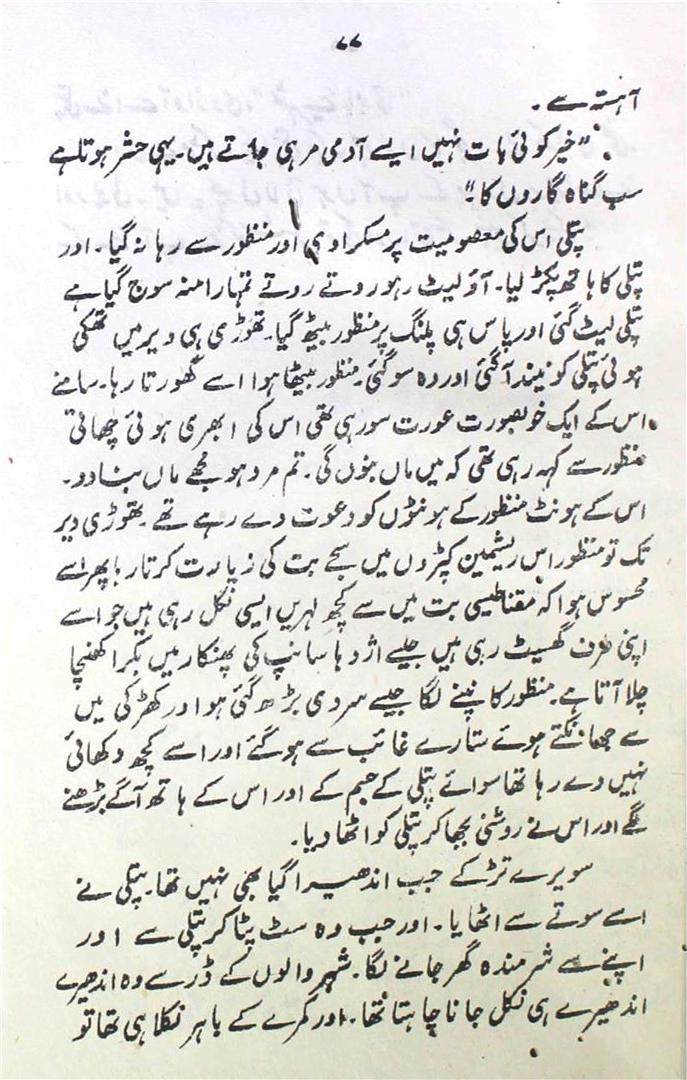 ۷۷
آہستہ سے۔
"خیر کوئی بات نہیں ایسے آدمی مر ہی جاتے ہیں۔ یہی حشر ہوتا ہے
سب گناہ گاروں کا۔"
پتلی اس کی معصومیت پر مسکرا دی اور منظور سے رہا نہ گیا۔ اور
پتلی کا ہاتھ پکڑ لیا۔ آؤ لیٹ رہو روتے روتے تمہارا منہ سوج گیا ہے
پتلی لیٹ گئی اور پاس ہی پلنگ پر منظور بیٹھ گیا۔ تھوڑی ہی دیر میں تھکی
ہوئی پتلی کو نیند آ گئی اور وہ سو گئی۔ منظور بیٹھا ہوا اسے گھورتا رہا۔ سامنے
اس کے ایک خوبصورت عورت سو رہی تھی اس کی ابھری ہوئی چھاتی
منظور سے کہہ رہی تھی کہ میں ماں بنوں گی۔ تم مرد ہو مجھے ماں بنا دو۔
اس کے ہونٹ منظور کے ہونٹوں کو دعوت دے رہے تھے۔ تھوڑی دیر
تک تو منظور اس ریشمین کپڑوں میں سجے بت کی زیارت کرتا رہا پھر اسے
محسوس ہوا کہ مقناطیسی بت میں سے کچھ لہریں ایسی نکل رہی ہیں جو اسے
اپنی طرف گھسیٹ رہی ہیں جیسے اژدہا سانپ کی پھنکار میں بکرا کھنچا
چلا آتا ہے۔ منظور کانپنے لگا جیسے سردی بڑھ گئی ہو اور کھڑکی میں
سے جھانکتے ہوئے ستارے غائب سے ہو گئے اور اسے کچھ دکھائی
نہیں دے رہا تھا سوائے پتلی کے جسم کے اور اس کے ہاتھ آگے بڑھنے
لگے اور اس نے روشنی بجھا کر پتلی کو اٹھا دیا۔
سویرے تڑکے جب اندھیرا گیا بھی نہیں تھا۔ پتلی نے
اسے سوتے سے اٹھایا۔ اور جب وہ سٹ پٹا کر پتلی سے اور
اپنے سے شرمندہ گھر جانے لگا۔ شہر والوں کے ڈر سے وہ اندھیرے
اندھیرے ہی نکل جانا چاہتا تھا۔ اور کمرے کے باہر نکلا ہی تھا تو